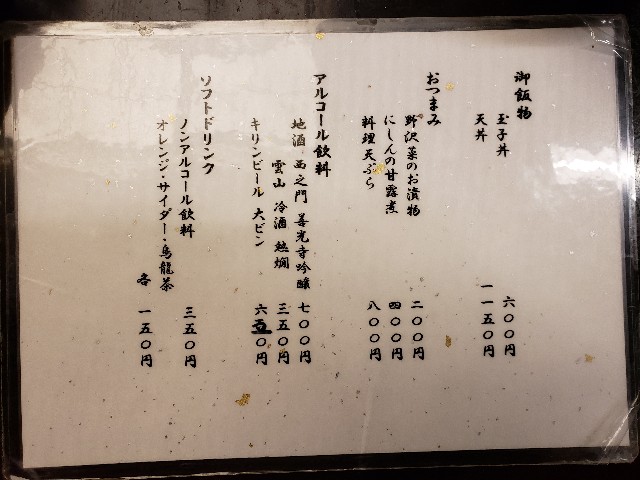 御飯物
玉子丼 六〇〇円
天丼 一一五〇円
おつまみ
野沢菜のお漬物 二〇〇円
にしんの甘露煮 四〇〇円
料理天ぷら 八〇〇円
アルコール飲料
地酒 西之門 善光寺吟醸 七〇〇円
雲山 冷酒 熱燗 三五〇円
キリンビール 大ビン 六五〇円
ソフトドリンク
ノンアルコール飲料 三五〇円
オレンジ・サイダー・烏龍茶 各 一五〇円